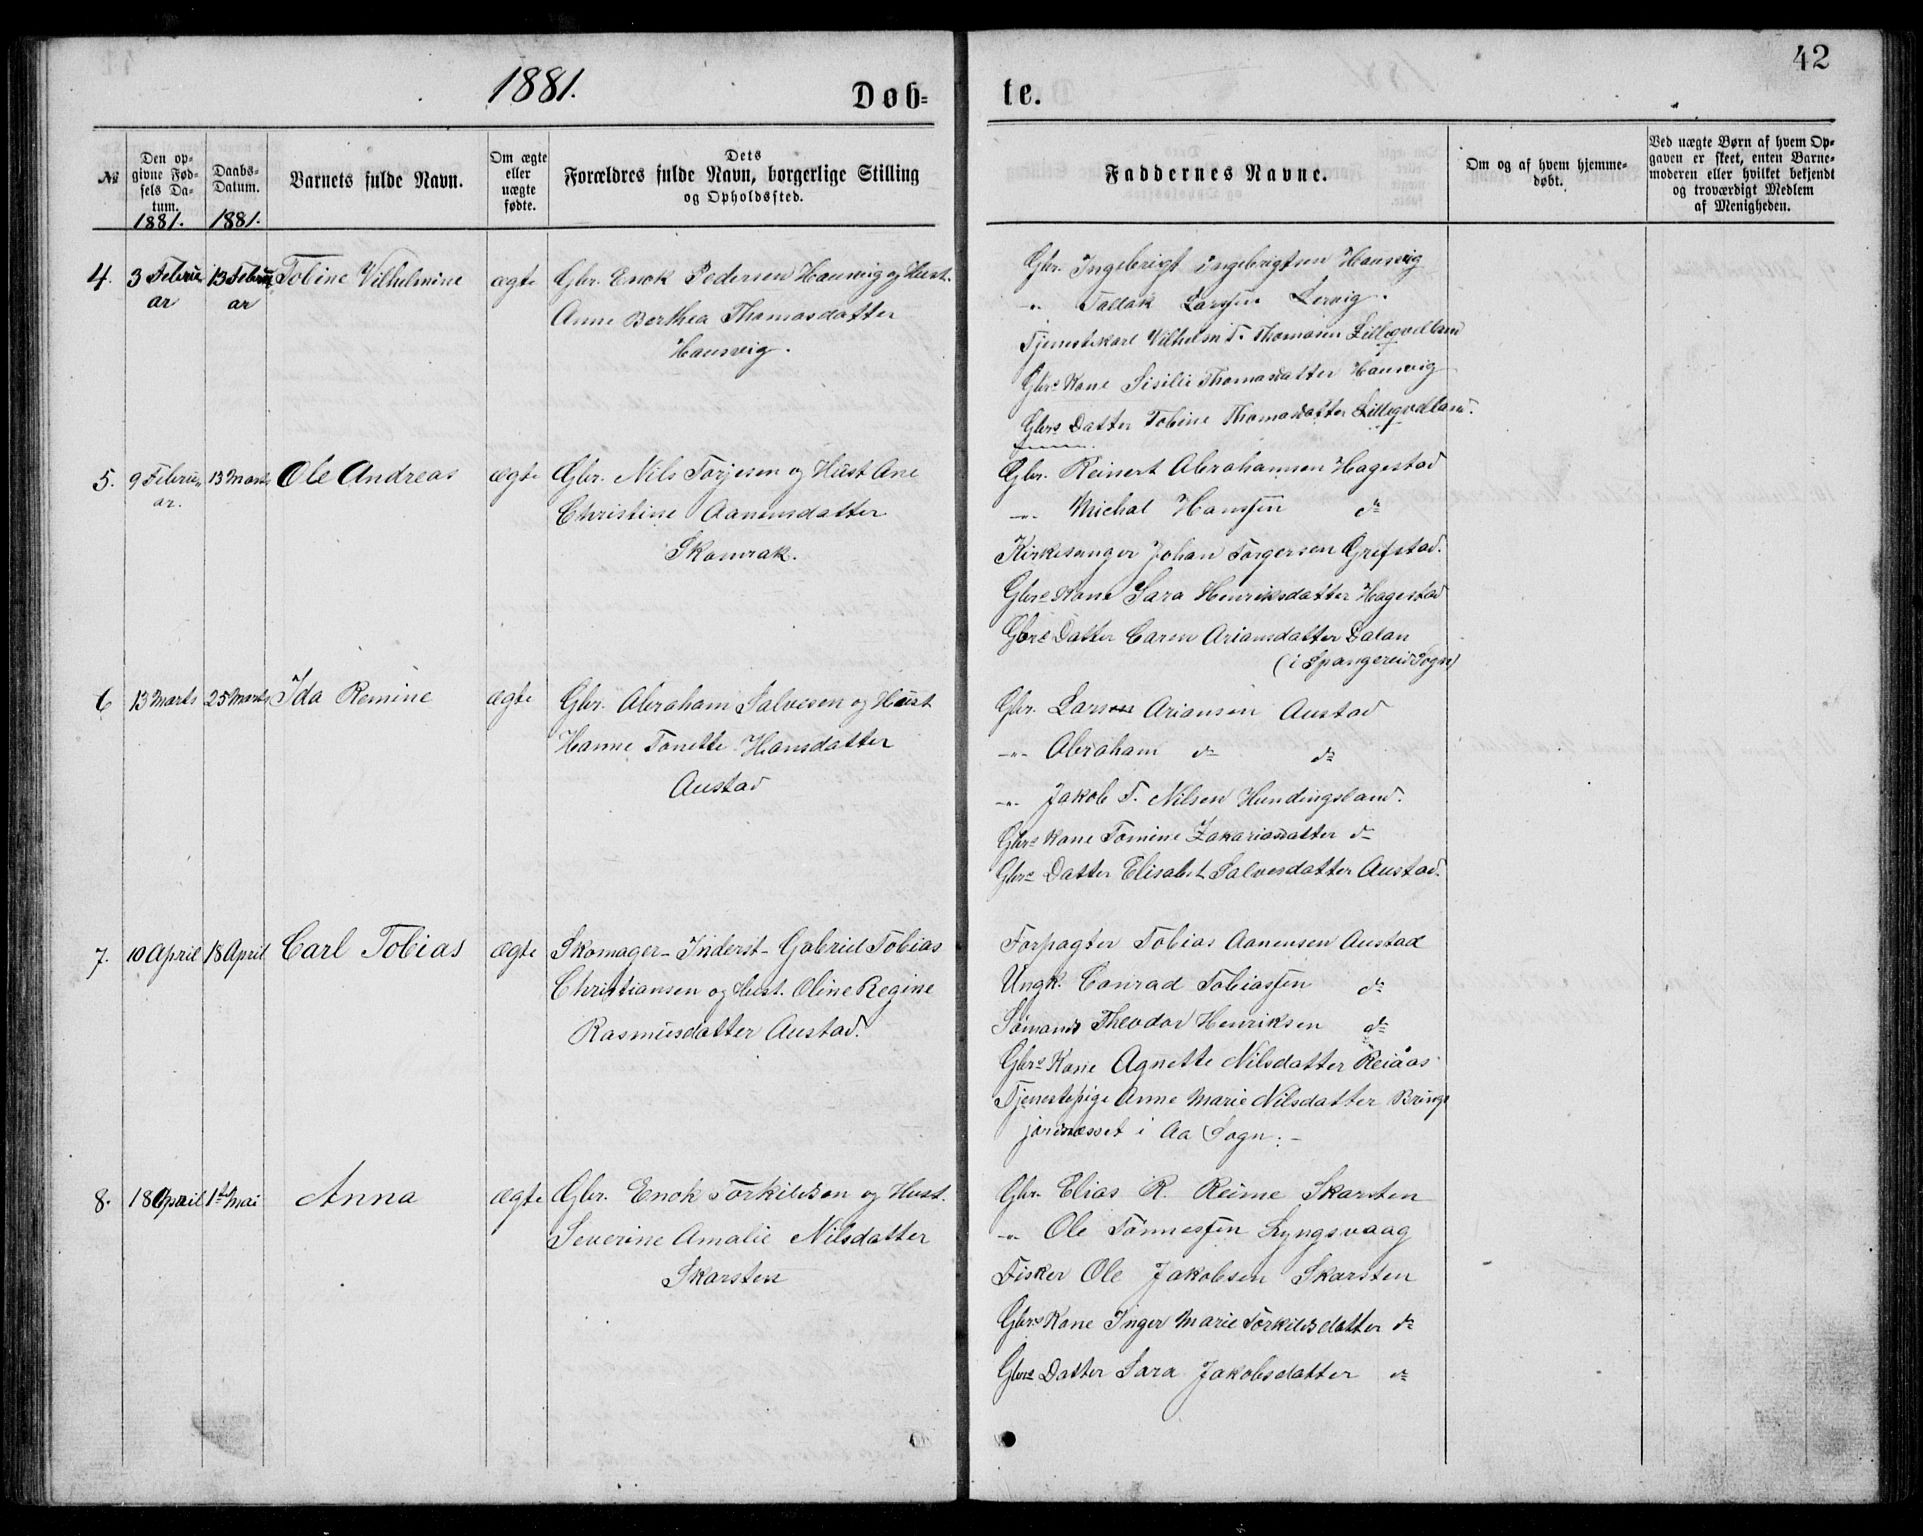 42
1881.
Døb=
te.
№
Den op-
givne Fød-
sels Da-
tum.
1881.
Daabs-
Datum.
1881.
Barnets fulde Navn.
Om ægte
eller
uægte
fødte.
Dets
Forældres fulde Navn, borgerlige Stilling
og Opholdssted.
Faddernes Navne.
Om og af hvem hjemme-
døbt.
Ved uægte Børn af hvem Op-
gaven er skeet, enten Barne-
moderen eller hvilket bekjendt
og troværdigt Medlem
af Menigheden.
4. 3 Febru- 13 Febru- Tobine Vilhelmine ægte Gbr. Enok Pedersen Hausvig og Hust.
ar ar
Anne Berthea Thomasdatter
Hausvig.
Gbr. Ingebrigt Ingebrigtsen Hausvig
-"- Tallak Larssen Lervig.
Tjenestekarl Vilhelm T. Thomasen Lillegvelland
Gbrs Kone Sisilie Thomasdatter Hausvig
Gbrs Datter Tobine Thomasdatter Lillegvelland.
5. 9 Febru- 13 Marts Ole Andreas ægte Gbr. Nils Torjesen og Hust Ane
ar.
Christine Aanensdatter
Skomrak.
Gbr. Reinert Abrahamsen Hagestad
-"- Michal Hanssen do
Kirkesanger Johan Torgersen Grefstad.
Gbrs Kone Sara Henriksdatter Hagestad
Gbrs Datter Caren Ariansdatter Dalan
(i Spangereid Sogn)
6 13 Marts 25 Marts Ida Remine ægte Gbr. Abraham Salvesen og Hust
Hanne Tonette Hansdatter
Austad
Gbr. Lars Ariansen Austad
-"- Abraham do do
-"- Jakob T. Nilsen Hundingsland.
Gbrs Kone Tomine Zakariasdatter do
Gbrs Datter Elisabet Salvesdatter Austad.
7. 10 April 18 April Carl Tobias ægte Skomager- Inderst- Gabriel Tobias
Christiansen og Hust. Oline Regine
Rasmusdatter Austad.
Forpagter Tobias Aanensen Austad
Ungk. Conrad Tobiassen do
Sømand Theodor Henriksen do
Gbrs Kone Agnette Nilsdatter Reiåas
Tjenestepige Anne Marie Nilsdatter Brings
jordnesset i Aa Sogn.-
8. 18 April 1ste Mai Anna ægte Gbr. Enok Torkildsen og Hust.
Severine Amalie Nilsdatter
Skarsten
Gbr. Elias R. Reime Skarsten
-"- Ole Tønnessen Lyngsvaag
Fisker Ole Jakobsen Skarsten
Gbrs Kone Inger Marie Torkildsdatter do
Gbrs Datter Sara Jakobsdatter do